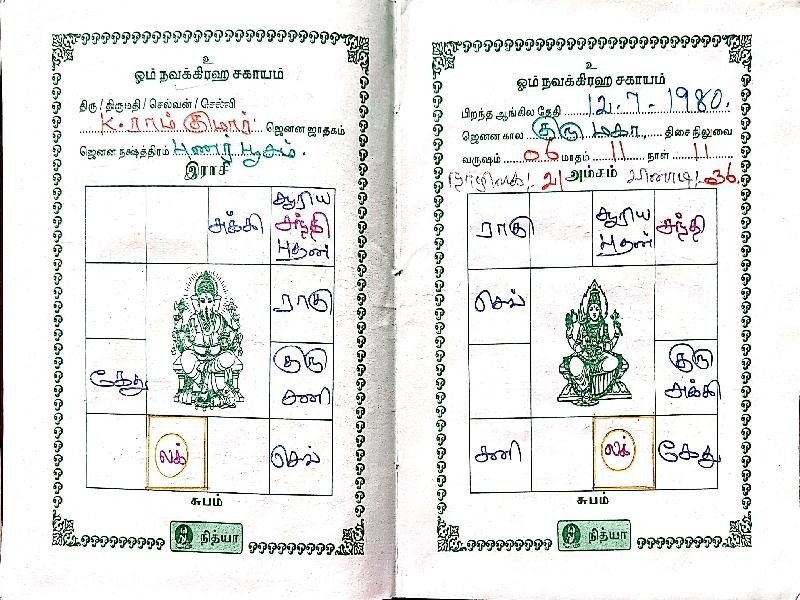 உ
ஓம் நவக்கிரஹ சகாயம்
திரு / திருமதி / செல்வன் / செல்வி
K. ராம் குமார் ஜெனன ஜாதகம்
ஜெனன நக்ஷத்திரம் புனர் பூசம்.
இராசி
சுக்கி
சூரிய
சந்தி
புதன்
ராகு
கேது
குரு
சனி
லக்
செவ்
சுபம்
நித்யா
உ
ஓம் நவக்கிரஹ சகாயம்
பிறந்த ஆங்கில தேதி 12.7-1980.
ஜெனன கால குரு மகா, திசை நிலுவை
வருஷம் 06 மாதம் 11 நாள் 11
நாழிகை: 21 அம்சம் வினாடி: 36.
ராகு
சூரிய
புதன்
சந்தி
செவ்
குரு
சுக்கி
சனி
லக்
கேது
சுபம்
நித்யா